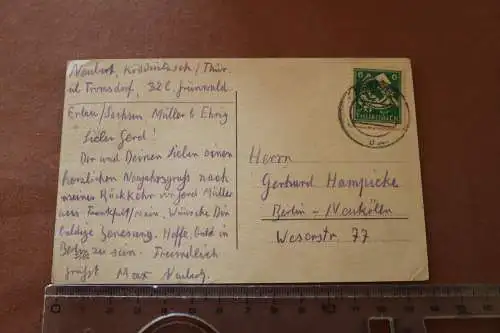 Neubert, / Thür.
Grünwald
Erlau/Sachsen Müller & Ehrig
Lieber Gerd!
Dir und Deinen Lieben einen
herzlichen Neujahrsgruß nach
meiner Rückkehr von Gerd Müller
aus Frankfurt/Main. Wünsche Dir
baldige Genesung. Hoffe, bald in
zu sein. Freundlich
grüßt Max
Herrn
Gerhard Hampicke
Berlin - Neukölln
Weserstr. 77
6 6
0 1 2 3 4 5 6 7 8 9 10 11 12 13 14